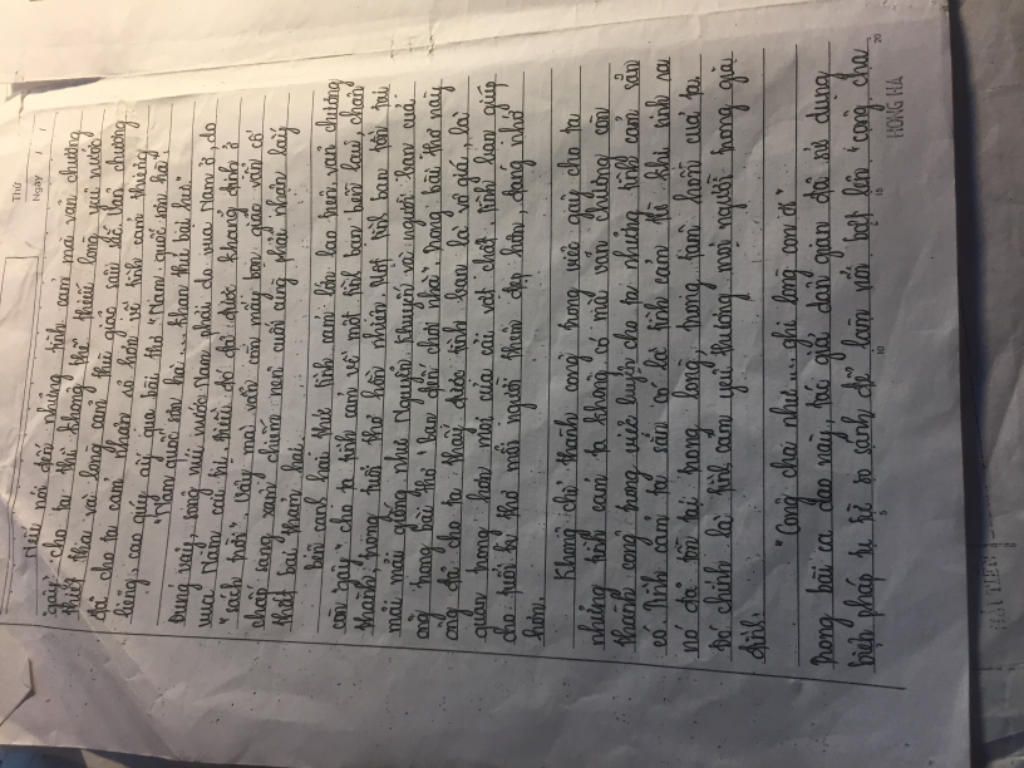 Thứ
Ngày
Nếu nói đến những tình cảm mà văn chương
gây cho ta thì không thể thiếu lòng yêu nước
thiết tha và lòng căm thù giặc sâu sắc. Văn chương
đã cho ta cảm nhận rõ hơn về tình cảm thiêng
liêng, cao quý ấy qua bài thơ "Nam quốc sơn hà"
"Nam quốc sơn hà... khan thủ bại hư"
Đúng vậy, sông núi nước Nam phải do vua Nam ở, do
vua Nam cai trị, điều đó đã được khẳng định ở
"sách trời". Vậy mà vẫn còn mấy bọn giặc vẫn cố
chấp sang xâm chiếm nên cuối cùng phải nhận lấy
thất bại thảm hại.
Bên cạnh loài thứ tình cảm lớn lao trên văn chương
còn gây cho ta tình cảm về một tình bạn bền lâu, chân
thành trong tuổi thơ hồn nhiên. Một tình bạn tồn tại
mãi mãi giống như Nguyễn Khuyến và người bạn của
ông trong bài thơ "bạn đến chơi nhà". Trong bài thơ này
ông đã cho ta thấy được tình bạn là vô giá, là
quan trọng hơn mọi của cải vật chất. Tình bạn giúp
cho tuổi thơ mỗi người thêm đẹp hơn, đáng nhớ
hơn.
Không chỉ thành công trong việc gây cho ta
những tình cảm ta không có mà văn chương còn
thành công trong việc luyện cho ta những tình cảm sẵn
có. Tình cảm ta sẵn có là tình cảm từ khi sinh ra
nó đã tồn tại trong lòng, trong tâm hồn của ta.
Đó chính là tình cảm yêu thương mọi người trong gia
đình.
"Công cha như ... ghi lòng con ơi"
Trong bài ca dao này, tác giả dân gian đã sử dụng
biện pháp tu từ so sánh để làm nổi bật lên "công cha
5 10 15 20
HỒNG HÀ